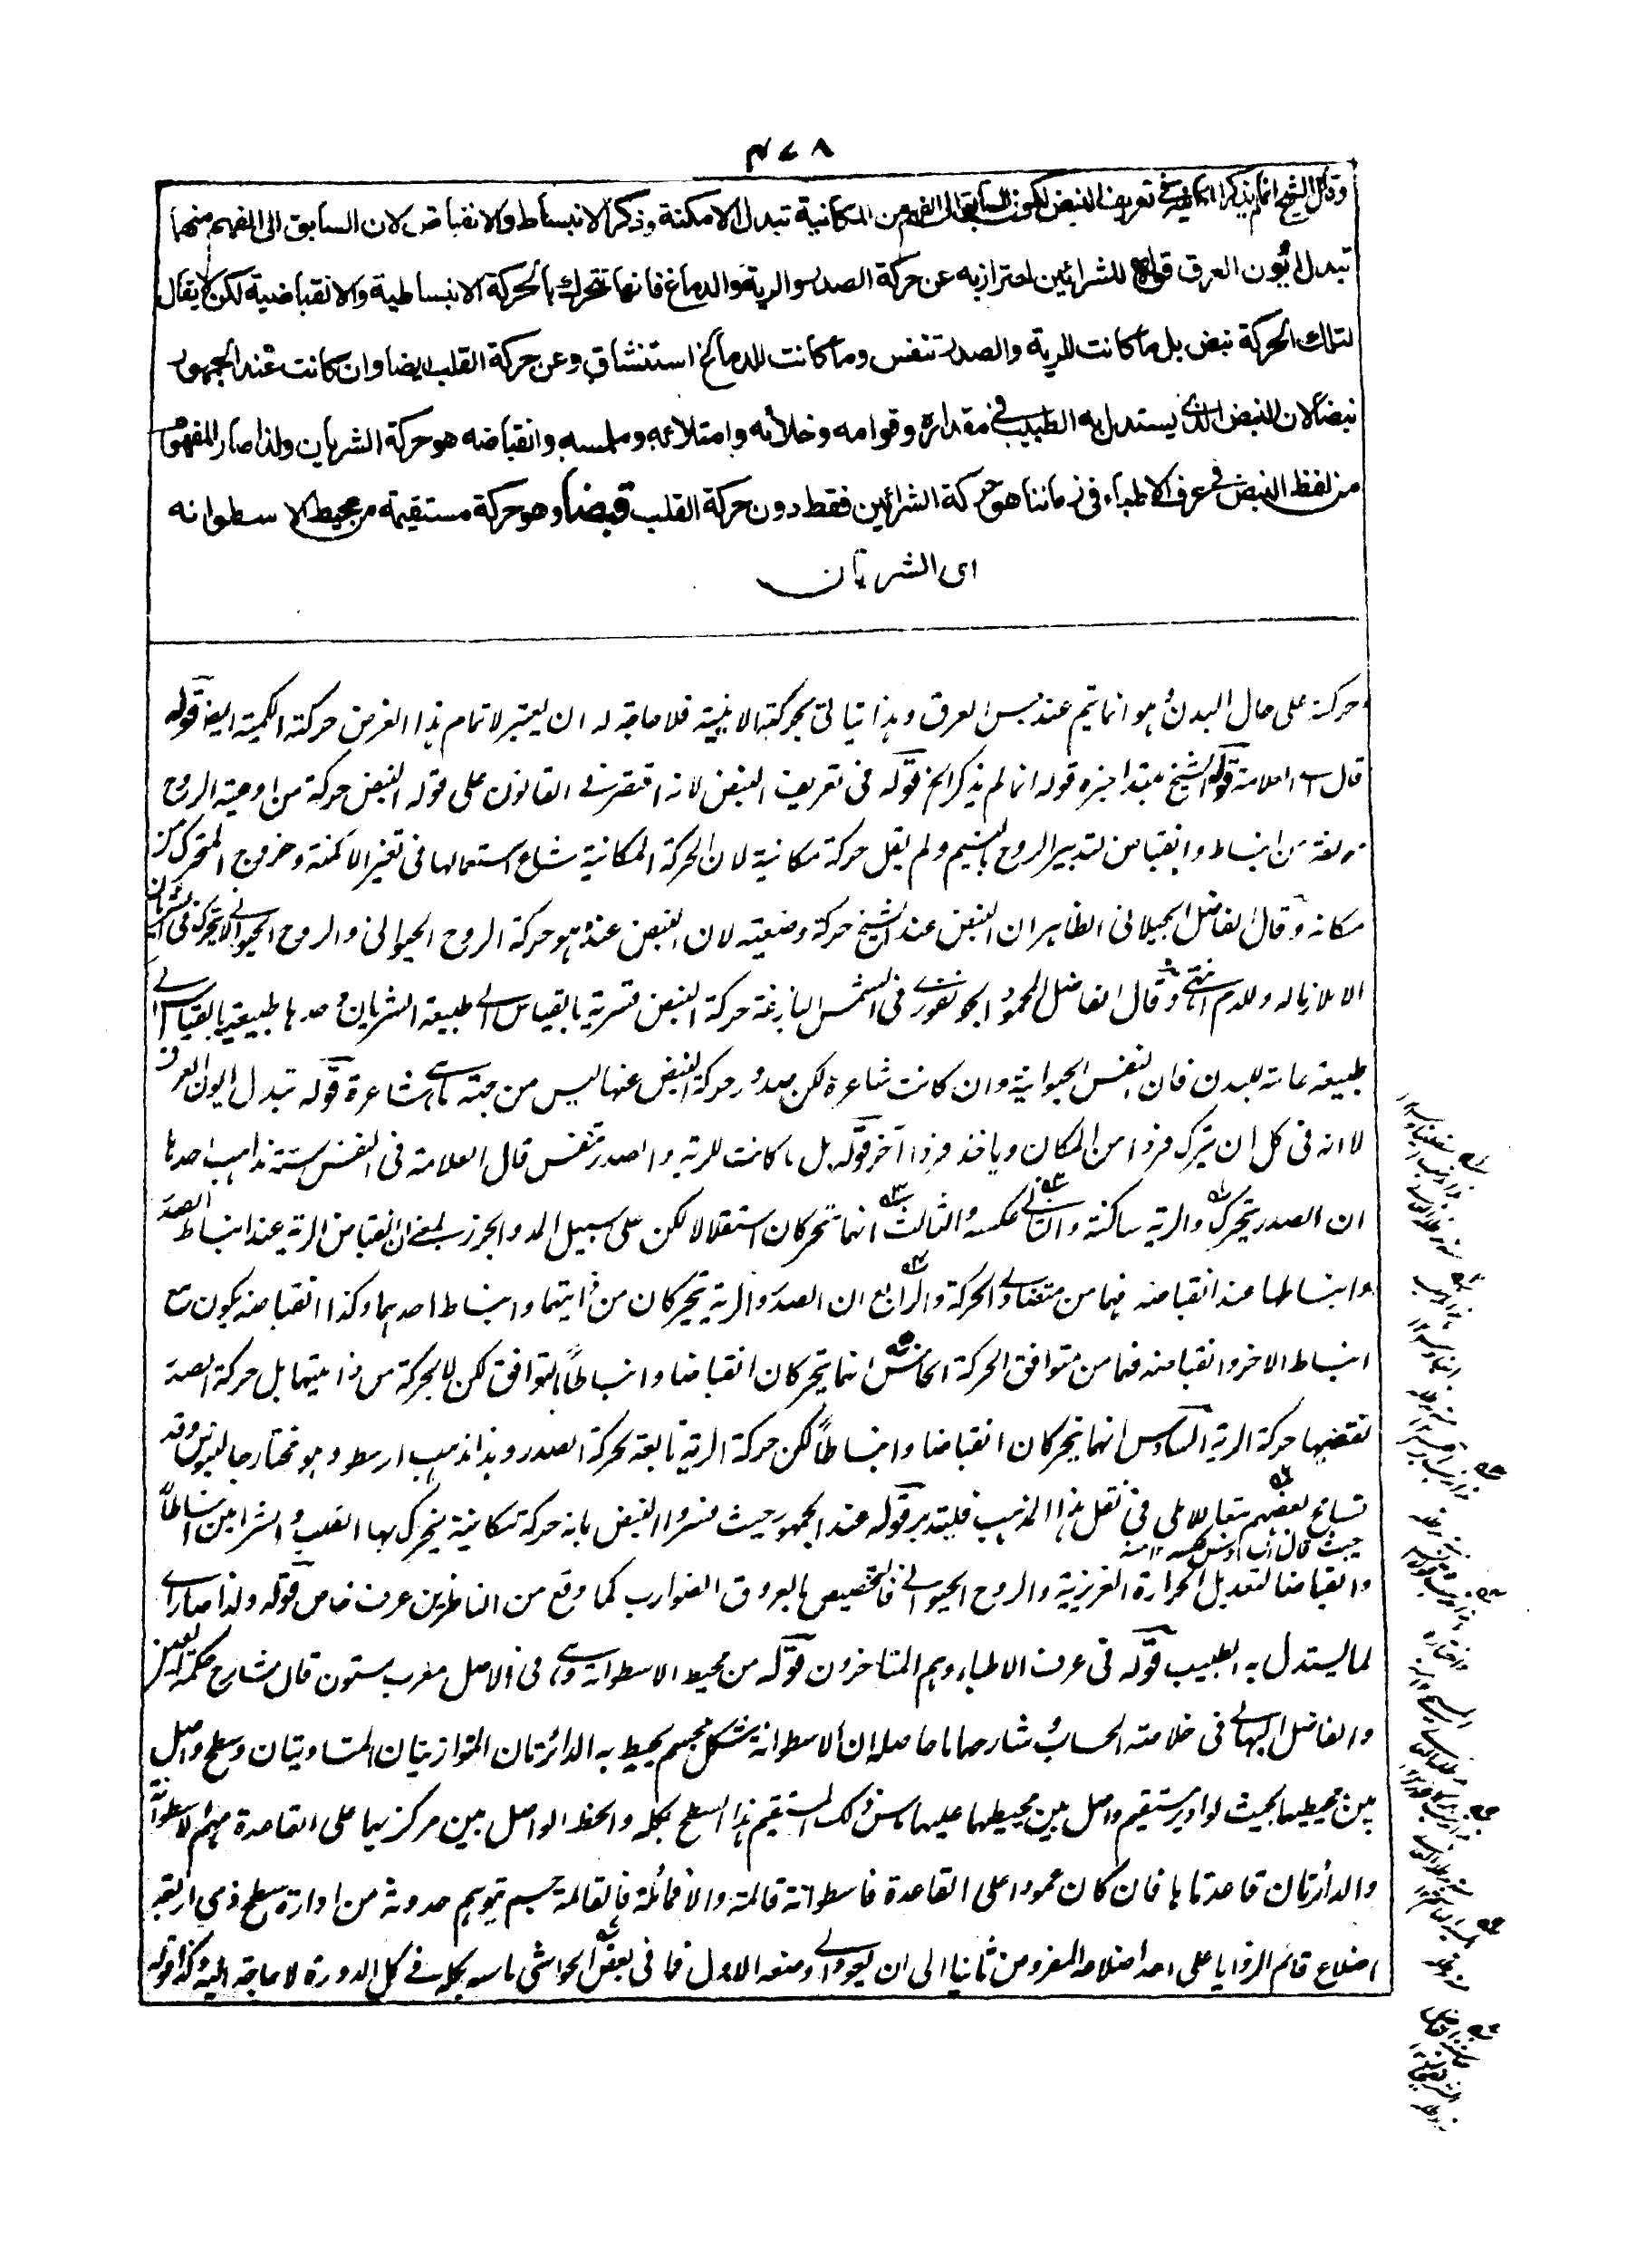 ٤٧٨
وقال الشيخ انما لم يذكر المكانية في تعريف النبض لكون السابق الى الفهم من المكانية تبدل الامكنة وذكر الانبساط والانقباض لان السابق الى الفهم منها
تبدل ايون العرق قوله للشرائين احتراز به عن حركة الصدر والرية والدماغ فانها تتحرك بالحركة الانبساطية والانقباضية لكن لا يقال
لتلك الحركة نبض بل ما كانت للرية والصدر تنفس وما كانت للدماغ استنشاق وعن حركة القلب ايضا وان كانت عند الجمهور
نبضا لان النبض الذي يستدل به الطبيب في مقداره وقوامه وخلائه وامتلائه وملمسه وانقباضه هو حركة الشريان ولذا صار المفهوم
من لفظ النبض في عرف الاطباء في زماننا هو حركة الشرائين فقط دون حركة القلب قبضا وهو حركة مستقيمة من محيط الاسطوانه
اى الشريان
حركة على حال البدن وهو انما تيم عند حبس العرق وهذا يتاتى بحركته الاينية فلا حاجة له ان يعتبر لاتمام هذا الغرض حركته الكمية ايضا قوله
قال اى العلامة قوله الشيخ مبتدا خبره قوله انما لم يذكر الخ قوله فى تعريف النبض لانه اقتصر فى القانون على قوله النبض حركة من اوعية الروح
مولفة من انبساط وانقباض لتدبير الروح بالنسيم ولم يقل حركة مكانية لان الحركة المكانية شاع استعمالها فى تغير الامكنة وخروج المتحرك من
مكانه وقال الفاضل الجيلانى الظاهر ان النبض عند الشيخ حركة وضعية لان النبض عنده هو حركة الروح الحيوانى والروح الحيوانى لا يتحرك فى الشريان
الا ملازما له وللدم انتهى وقال الفاضل المحمود الجونفورى فى الشمس البازغة حركة النبض قسرية بالقياس الى طبيعة الشريان وحدها طبيعية بالقياس الى
طبيعة عامة للبدن فان النفس الحيوانية وان كانت شاعرة لكن صدور حركة النبض عنها ليس من جهة ما هى شاعرة قوله تبدل ايون العرق
لا انه فى كل ان يترك فردا من المكان وياخذ فردا آخر قوله بل ما كانت للرية والصدر تنفس قال العلامة فى النفس ستة مذاهب احدها
ان الصدر يتحرك والرية ساكنة والثانى عكسه والثالث انهما تتحركان استقلالا لكن على سبيل المد والجزر بمعنى ان انقباض الرية عند انبساط الصدر
وانبساطها عند انقباضه فهما من متضادى الحركة والرابع ان الصدر والرية تتحركان من ذاتيهما وانبساط احدهما وكذا انقباضه يكون مع
انبساط الاخر وانقباضه فهما من متوافق الحركة الخامس انهما يتحركان انقباضا وانبساطاً بالتوافق لكن لا بحركة من ذاتيهما بل حركة الصدر
تقتضيها حركة الرية السادس انهما يتحركان انقباضا وانبساطاً لكن حركة الرية تابعة لحركة الصدر وهذا مذهب ارسطو وهو مختار جالينوس وقد
تسامح بعضهم تبعا للاملى فى نقل هذا المذهب فليتدبر قوله عند الجمهور حيث فسروا النبض بانه حركة مكانية يتحرك بها القلب والشرائين انبساطاً
وانقباضا لتعديل الحرارة الغريزية والروح الحيوانى فالتخصيص بالعروق الضوارب كما وقع من الناظرين عرف خاص قوله ولذا صار اى
لما يستدل به الطبيب قوله فى عرف الاطباء وهم المتاخرون قوله من محيط الاسطوانة وهى فى الاصل معرب ستون قال شارح حكمة العين
والفاضل البهائى فى خلاصة الحساب وشارحها ما حاصله ان الاسطوانة شكل مجسم يحيط به الدائرتان المتوازيتان المتساويتان وسطح واصل
بين محيطيهما بحيث لو ادير مستقيم واصل بين محيطيهما عليهما ماس ذلك المستقيم هذا السطح بكله والخط الواصل بين مركزيهما على القاعدة سهم الاسطوانة
والدائرتان قاعدتاها فان كان عمودا على القاعدة فاسطوانة قائمة والا فمائلة فالقائمة جسم يتوهم حدوثه من ادارة سطح ذى اربعة
اضلاع قائم الزوايا على احد اضلاعه المفروض ثانيا الى ان يعود الى وضعه الاول فما فى بعض الحواشى ماسه بكله فى كل الدورة لا حاجة اليه وكذا قوله